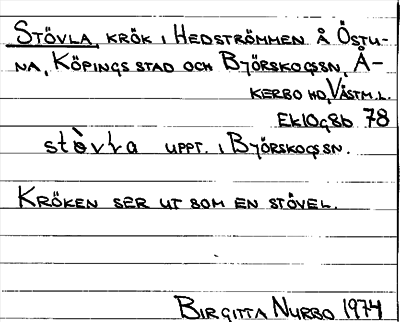 STÖVLA, KRÖK I HEDSTRÖMMEN Å ÖSTU-
NA, KÖPINGS STAD OCH BJÖRSKOGSSN, Å-
KERBO HD, VÄSTM.L.
EK10G8b 78
stòvla UPPT. I BJÖRSKOGSSN.
KRÖKEN SER UT SOM EN STÖVEL.
BIRGITTA NURBO 1974